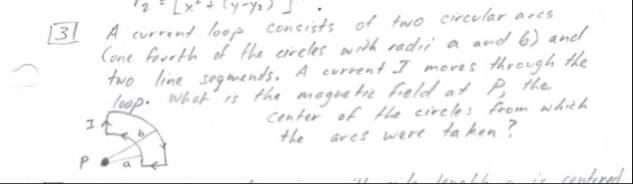 r₂ = [x² + (y-y₂)
3 A current loop consists of two circular arcs
(one fourth of the circles with radii a and b) and
two line segments. A current I moves through the
loop. What is the magnetic field at P, the
center of the circles from which
the arcs were taken?
I
b
P a
is centered